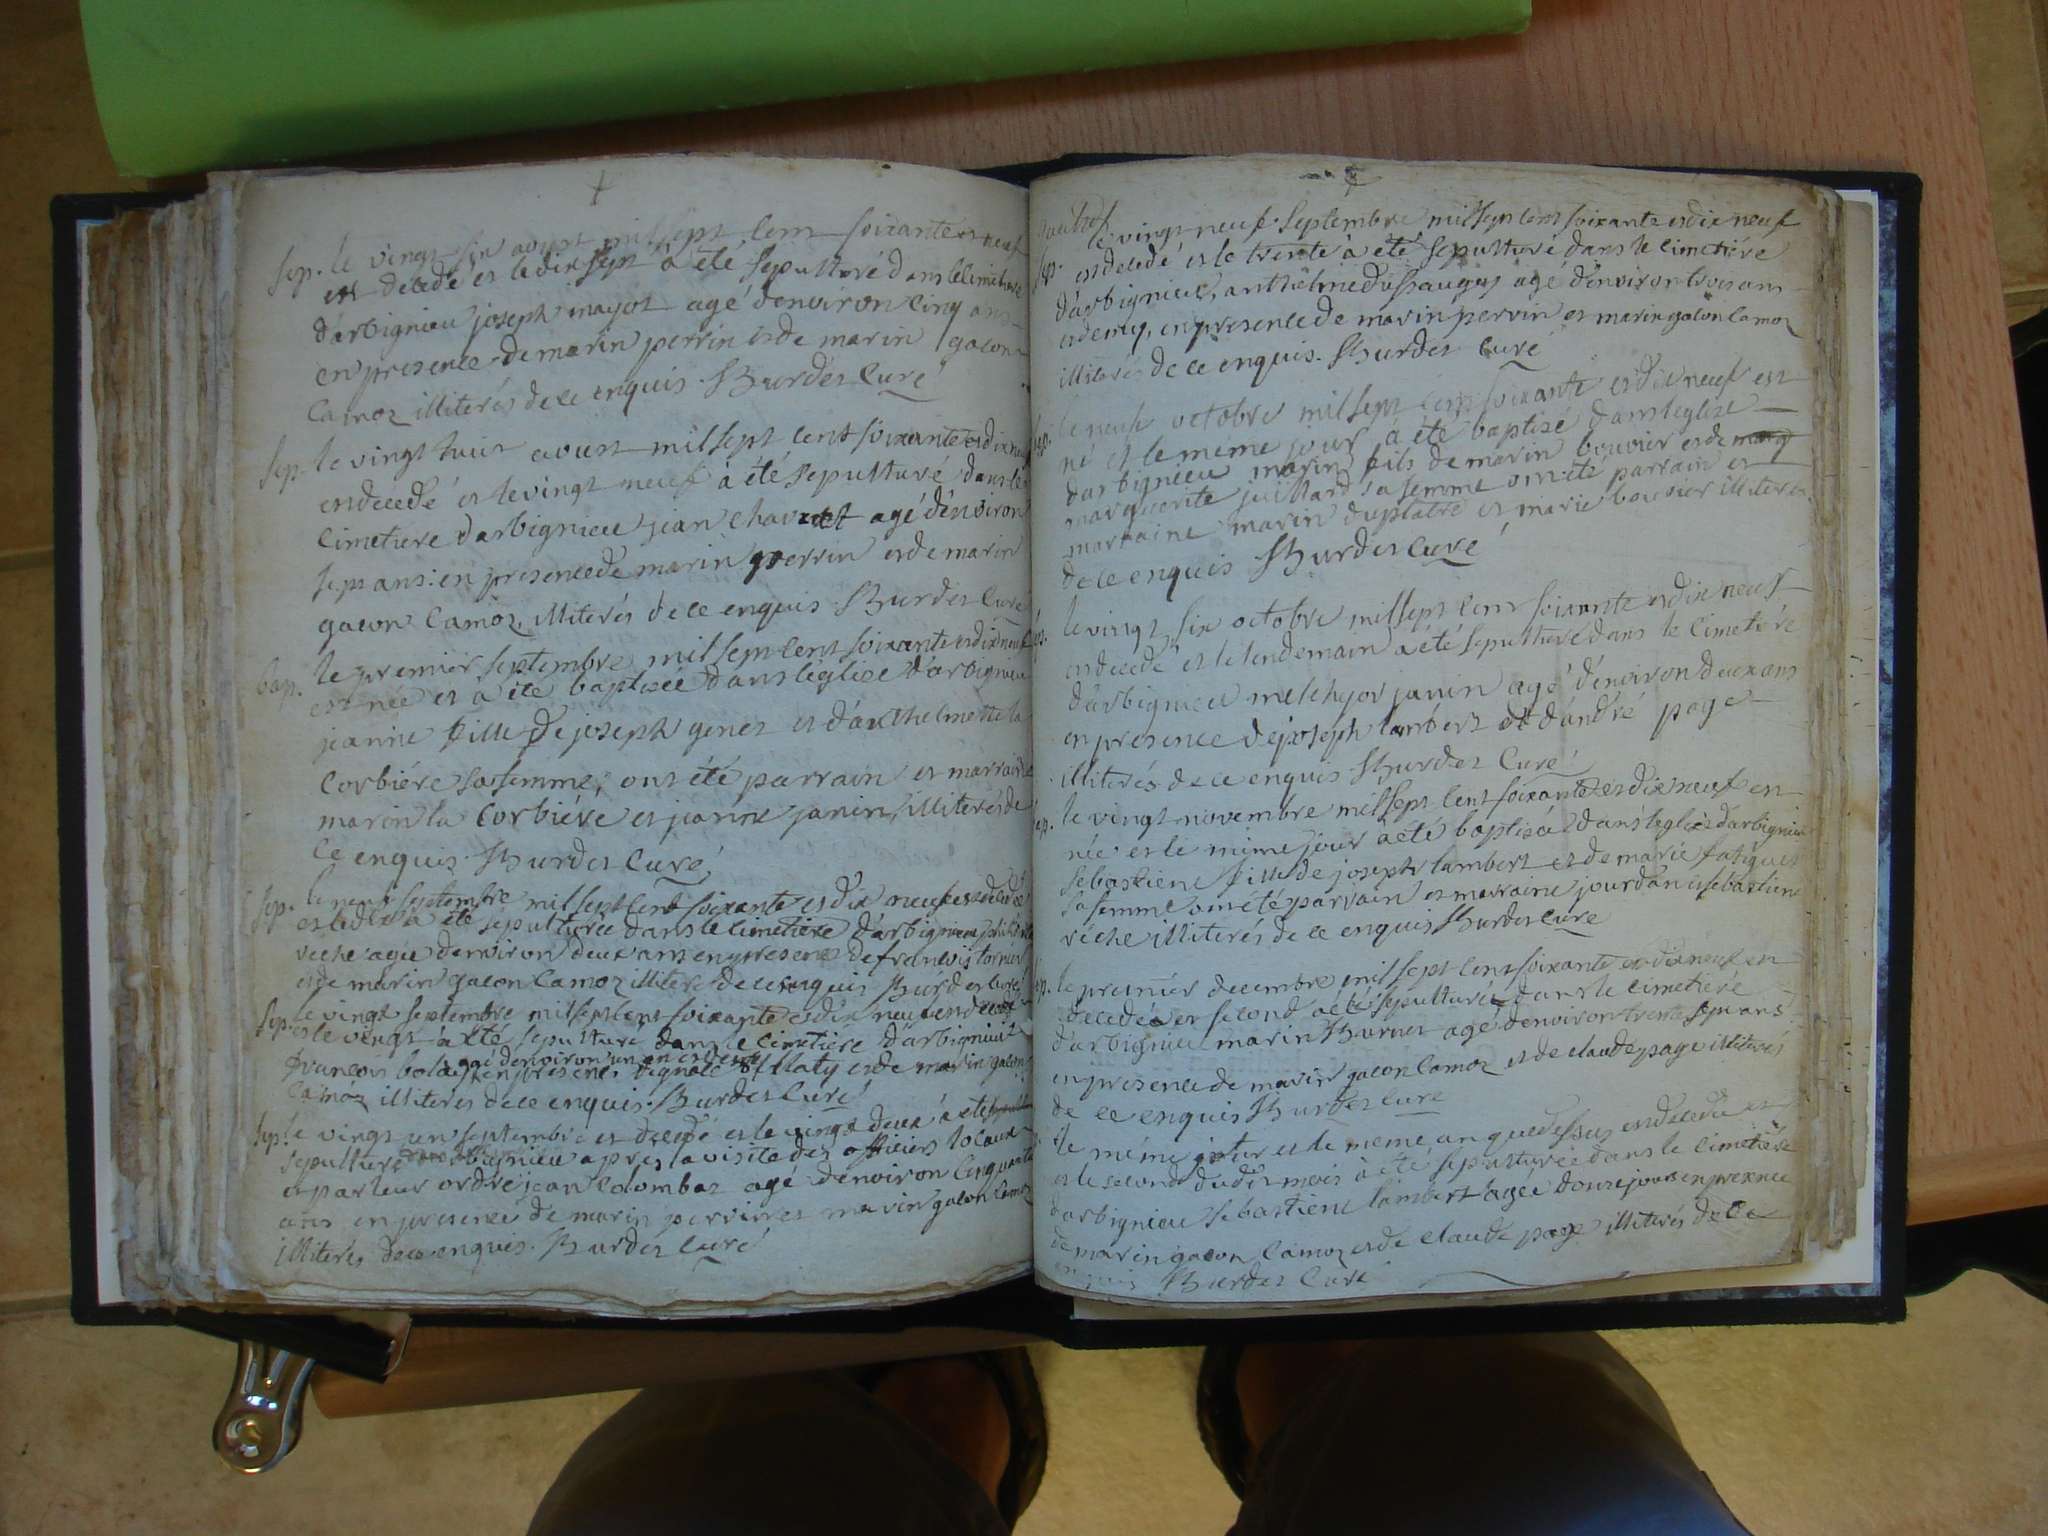 sep. le vingt six aoust mil sept cent soixante et neuf
est decedé et le dix sept a été sepulturé dans le cimetiere
d'arbignieu joseph mayot agé d'environ cinq ans
en presence de marin perrin et de marin gacon
Camoz illiterés de ce enquis. Burdet Curé
sep. le vingt huit aoust mil sept cent soixante et dix neuf
est decedé et le vingt neuf a été sepulturé dans le
cimetiere d'arbignieu jean charvet agé d'environ
sept ans: en presence de marin perrin et de marin
gacon Camoz, illiterés de ce enquis Burdet Curé
bap. le premier septembre mil sept cent soixante et dix neuf
est née et a été baptisée dans l'église d'arbignieu
jeanne fille de joseph genet et d'anthelmette la
Corbiére sa femme, ont été parrain et marraine
marin la Corbiére et jeanne janin, illiterés de
ce enquis Burdet Curé
sep. le neuf septembre mil sept cent soixante et dix neuf est decedée
et le dix a été sepulturée dans le cimetiere d'arbignieu
veche agée d'environ deux ans en presence de francois
et de marin gacon Camoz illiteré de ce enquis Burdet curé
sep. le vingt septembre mil sept cent soixante et dix neuf est decedé
et le vingt a été sepulturé dans le cimetiére d'arbignieu
francois agé d'environ un an et demi en presence et de marin gacon
Camoz illiterés de ce enquis. Burdet Curé
sep. le vingt un septembre est decedé et le vingt deux a été
sepulturé arbignieu apres la visite des officiers locaux
et par leur ordre jean Colombaz agé d'environ Cinquante
ans en presence de marin perrin et marin gacon Camoz
illiterés de ce enquis. Burdet Curé
le vingt neuf septembre mil sept cent soixante et dix neuf
sep. est decedé et le trente a été sepulturé dans le cimetiére
d'arbignieu, anthelme dussauges agé d'environ trois ans
et demy, en presence de marin perrin et marin gacon Camoz
illiterés de ce enquis. Burdet Curé
le neuf octobre mil sept cent soixante et dix neuf est
né et le même jour a été baptisé dans l'eglise
d'arbignieu marin fils de marin bouvier et de
marguerite juillard sa femme ont été parrain et
marraine marin duplatre et marie bouvier illiterés
de ce enquis Burdet Curé
le vingt six octobre mil sept cent soixante et dix neuf
est decedé et le lendemain a été sepulturé dans le cimetiére
d'arbignieu melchyor janin agé d'environ deux ans
en presence de joseph lambert et d'andré page
illiterés de ce enquis Burdet Curé
le vingt novembre mil sept cent soixante et dix neuf est
née et le même jour a été baptisée dans l'eglise d'arbignieu
sebastiene fille de joseph lambert et de marie
sa femme ont été parrain et marraine jourdan et sebastiene
veche illiterés de ce enquis Burdet Curé
le premier decembre mil sept cent soixante et dix neuf est
decedé et second a été sepulturé dans le cimetiére
d'arbignieu marin Burnet agé d'environ trente sept ans
en presence de marin gacon Camoz et de claude page illiterés
de ce enquis Burdet Curé
le même jour et le même an que dessus est decedée et
et le second dudit mois a été sepulturée dans le cimetiére
d'arbignieu sebastiene lambert agée douze jours en presence
de marin gacon Camoz et de claude page illiterés de ce
enquis Burdet Curé